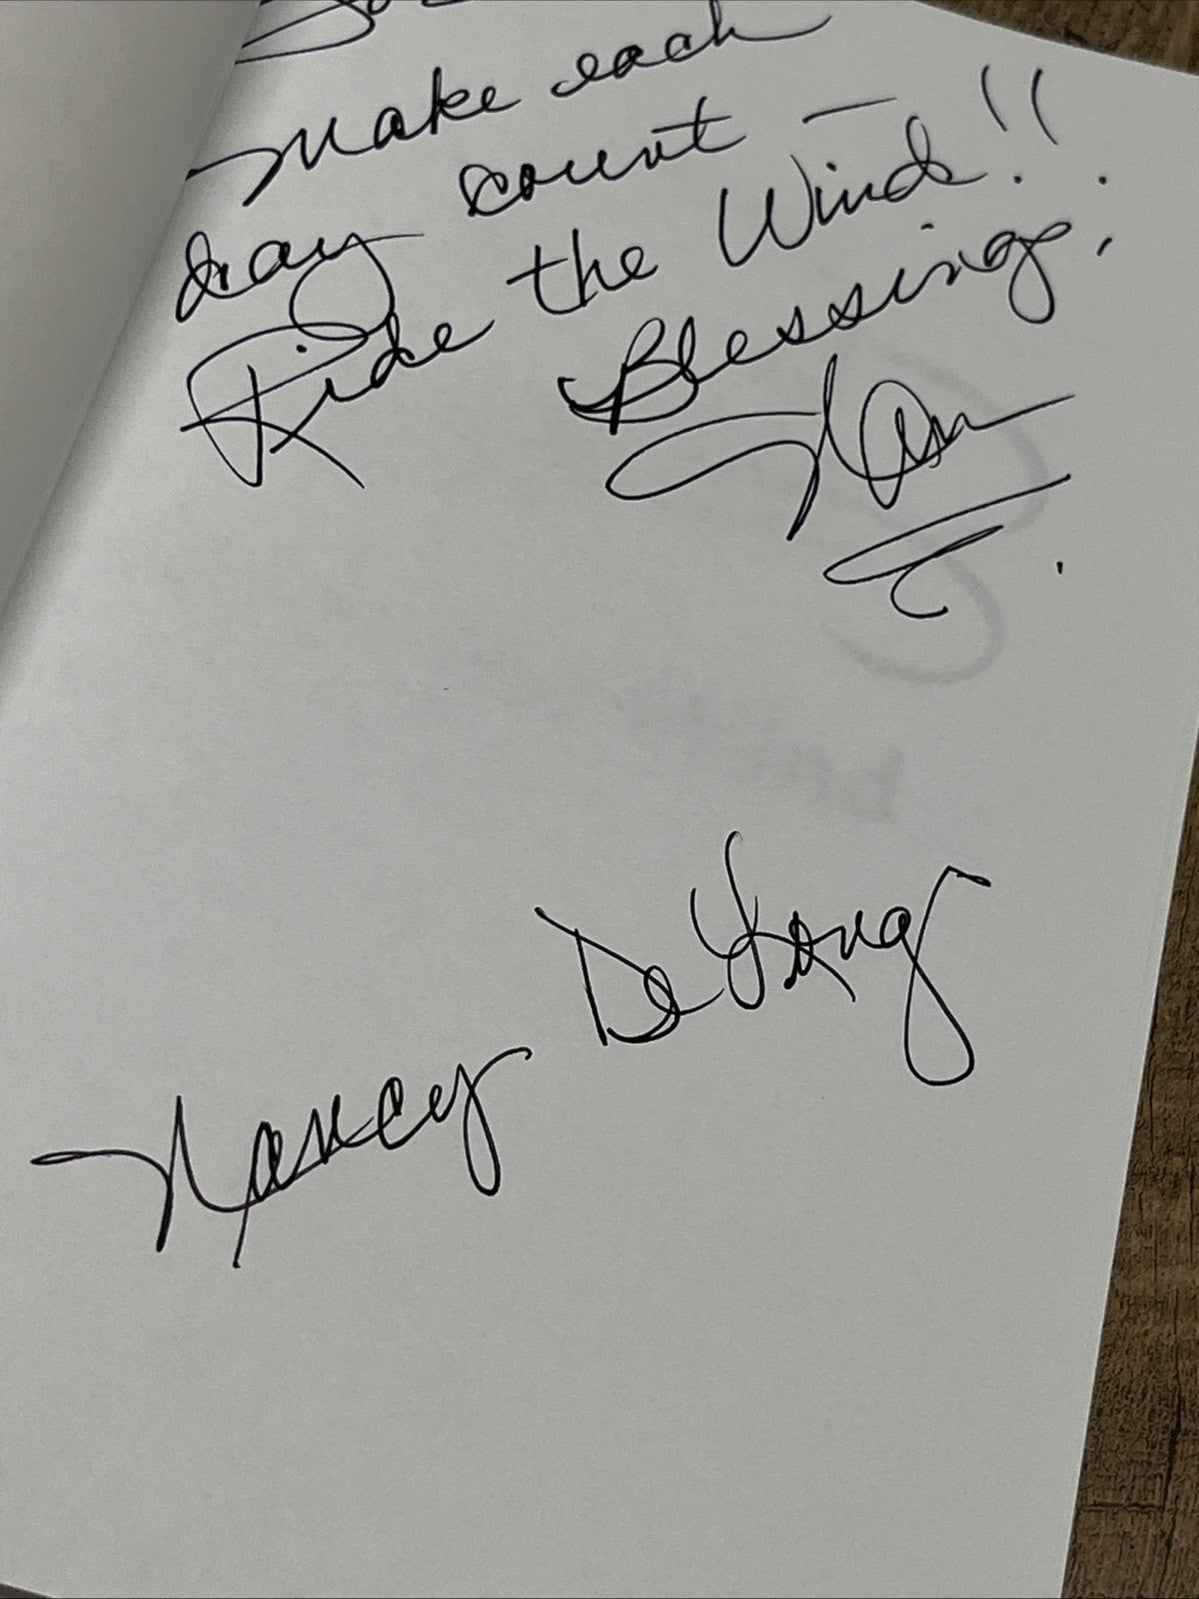 Make each
day count —
Ride the Wind!!
Blessings,
Nancy DeYong